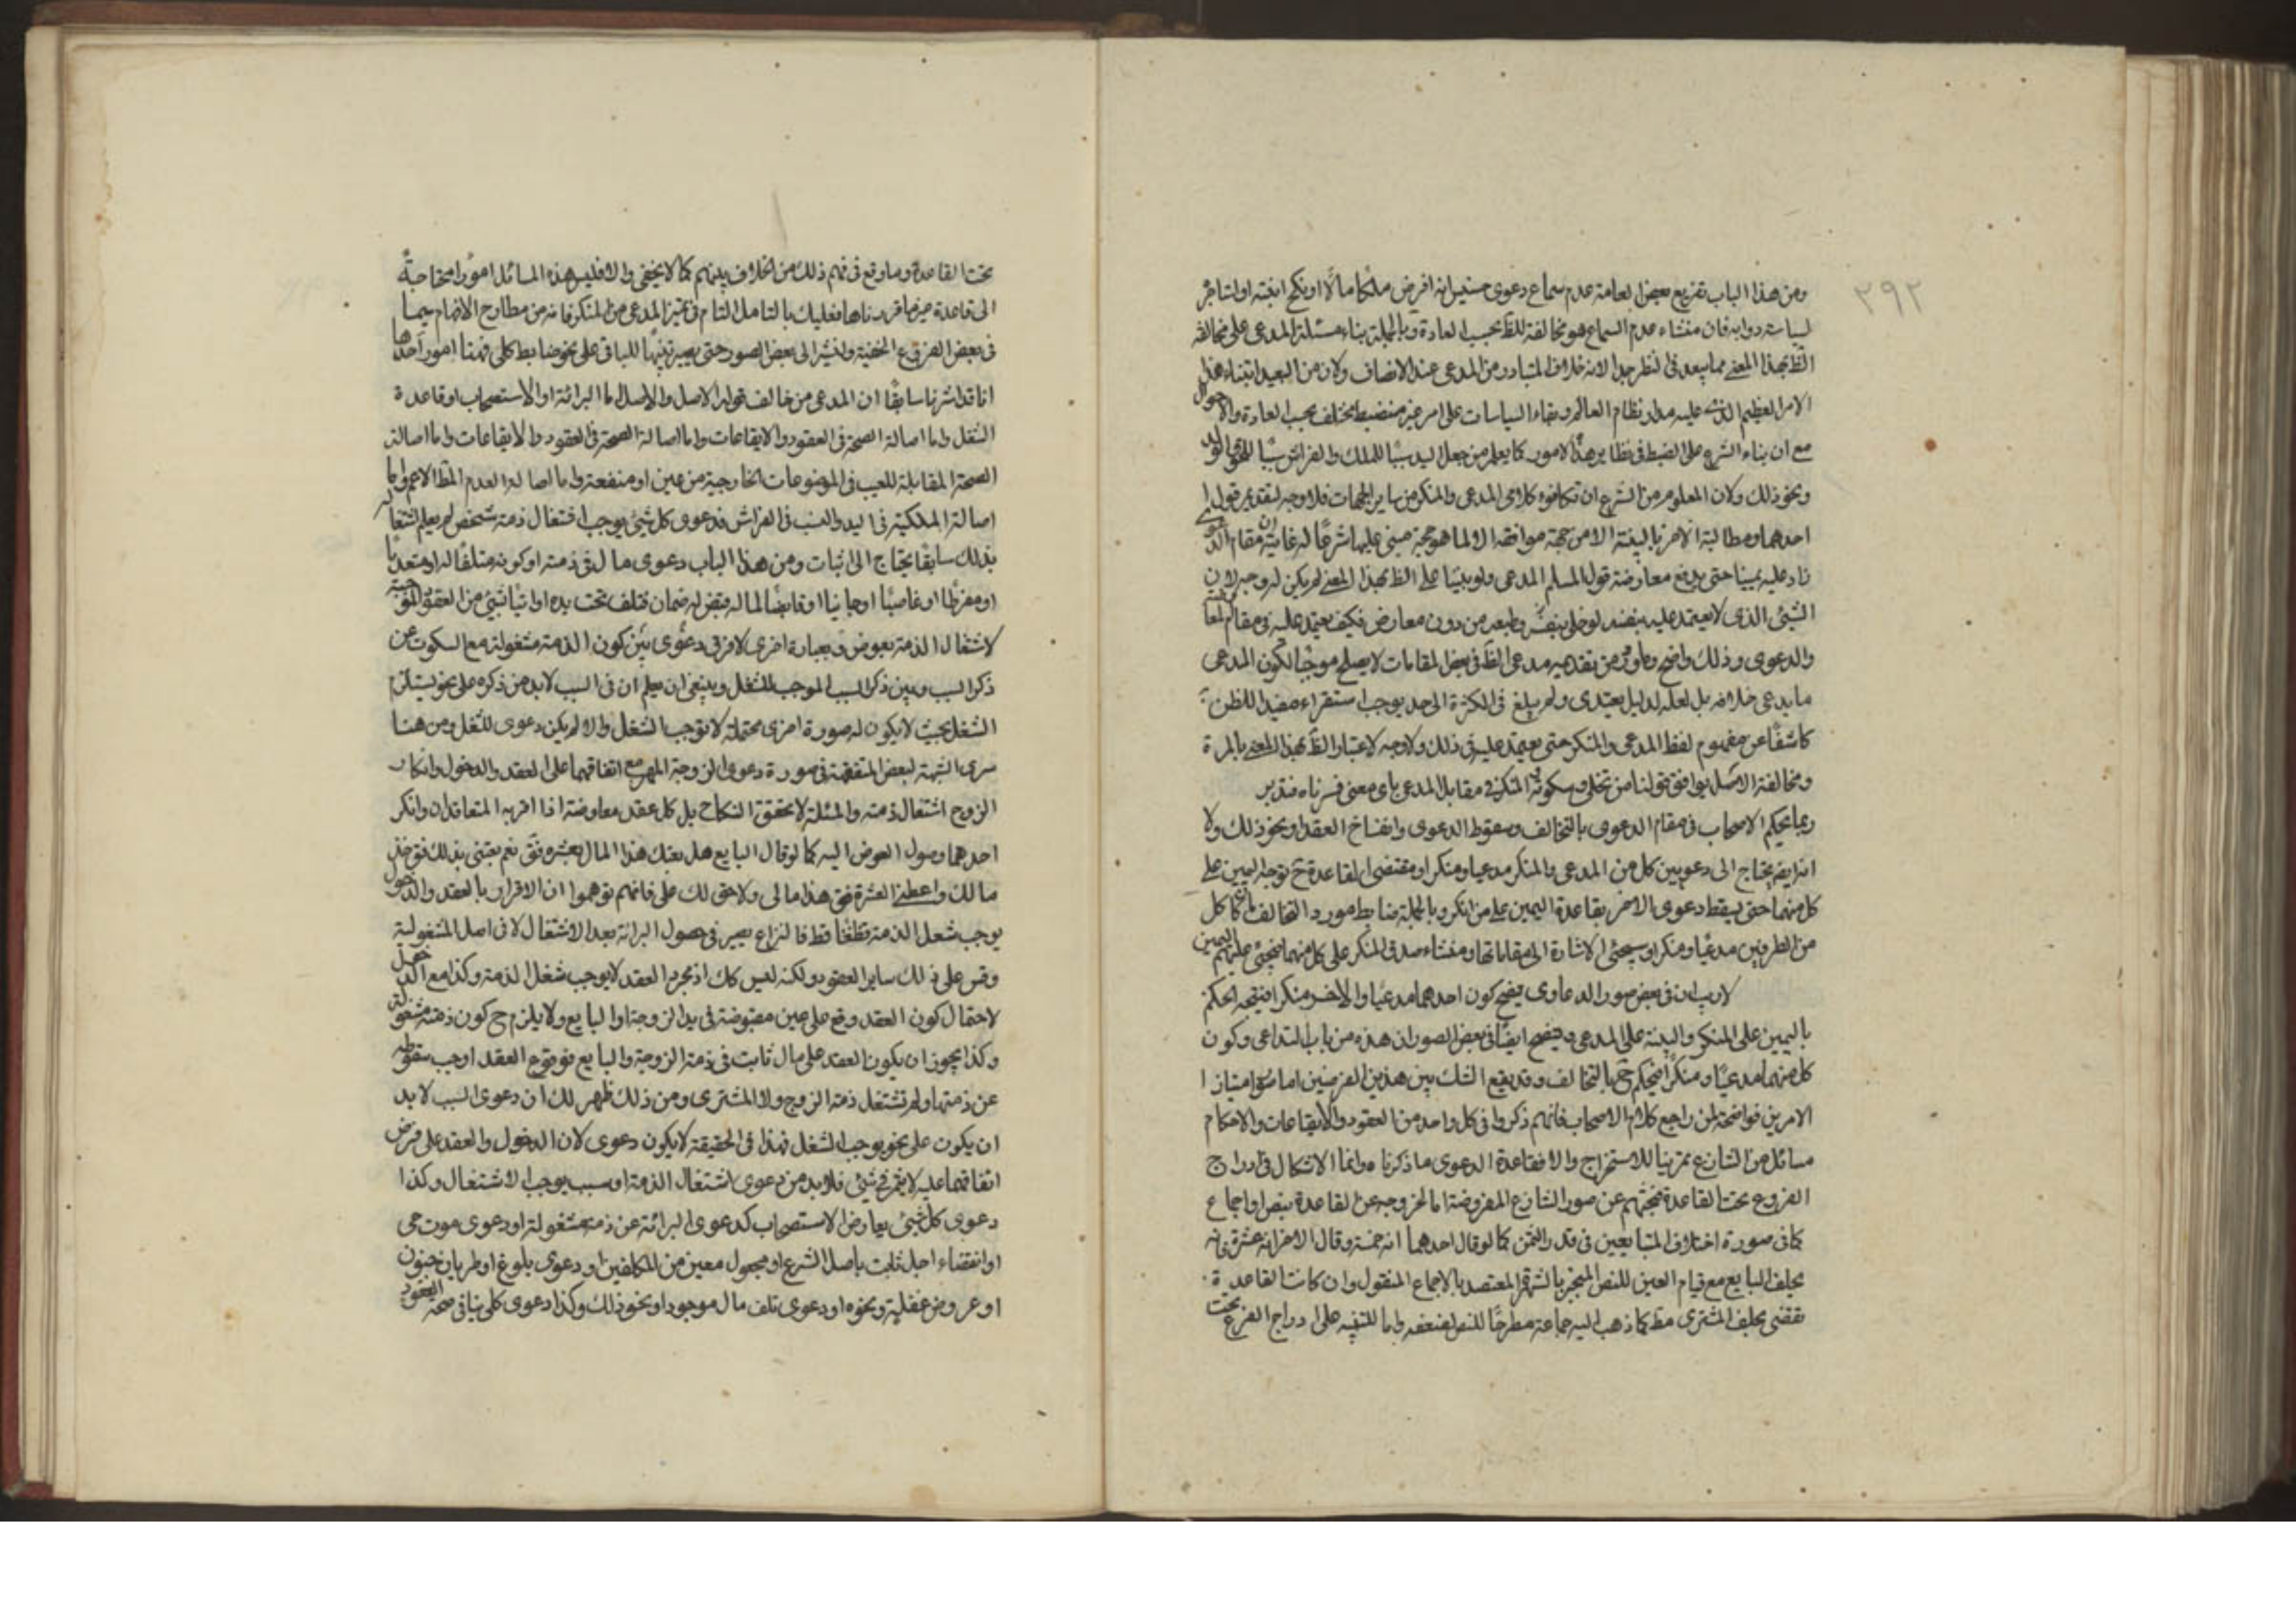 ٣٩٢
ومن هذا الباب تفريع بعض العامة عدم سماع دعوى خسيس انه اقرض ملكا مالا او نكح ابنته او استاجره
لسياسة دوابه فان منشاء عدم السماع هو مخالفة للظ بحسب العادة وبالجملة بناء مسئلة المدعى على مخالفة
الظ بهذا المعنى مما يبعد فى النظر جدا لانه خلاف المتبادر من المدعى عند الانصاف ولان من البعيد ابتناء هذا
الامر العظيم الذى عليه مدار نظام العالم وبقاء السياسات على امر غير منضبط يختلف بحسب العادة والاحوال
مع ان بناء الشرع على الضبط فى نظاير هذه الامور كما يعلم من جعل اليد سببا للملك والفراش سببا للحوق الولد
ونحو ذلك ولان المعلوم من الشرع ان تكافوء كلامى المدعى والمنكر من ساير الجهات فلا وجه لتقديم قول
احدهما ومطالبة الاخر بالبينة الا من جهة موافقة الاول لما هو حجة مبنى عليها شرعا له غاية ان مقام الدعوى
زاد عليه يمينا حتى يدفع معارضة قول المسلم المدعى ولو بينا على الظ بهذا المعنى لم يكن له وجه لان
الشئ الذى لا يعتمد عليه بنفسه لو خلى بنفسه وطبعه من دون معارض فكيف يعتمد عليه فى مقام المعارضة
والدعوى وذلك واضح وما ورد من تقديم مدعى الظ فى بعض المقامات لا يصلح موجبا لكون المدعى
ما يدعى خلافه بل لعله لدليل تعبدى ولم يبلغ فى الكثرة الى حد يوجب استقراء مفيدا للظن
كاشفا عن مفهوم لفظ المدعى والمنكر حتى يعتمد عليه فى ذلك ولا وجه لاعتبار الظ بهذا المعنى بالمرة
ومخالفة الاصل يوافق قولنا من تخلى وسكوته المنكر فى مقابل المدعى باى معنى فسرناه فتدبر
ربما يحكم الاصحاب فى مقام الدعوى بالتخالف وسقوط الدعوى وانفساخ العقد او نحو ذلك ولا
انه ايضا يحتاج الى دعويين كل من المدعى والمنكر مدعيا ومنكرا ومقتضى القاعدة ح توجه اليمين على
كل منهما حتى يسقط دعوى الاخر بقاعدة اليمين على من انكر وبالجملة ضابط مورد التحالف ما كان كل
من الطرفين مدعيا ومنكرا وسيجئ الاشارة الى مقاماتها ومنشاء صدق المنكر على كل منهما فيجئ عليهم اليمين
لا ريب ان فى بعض صور الدعاوى يتضح كون احدهما مدعيا والاخر منكرا فيتجه الحكم
باليمين على المنكر والبينة على المدعى ويتضح ايضا فى بعض الصور ان هذه من باب التداعى وكون
كل منهما مدعيا ومنكرا فيحكم ح بالتحالف وقد يقع الشك بين هذين الفرضين اما صورة امتياز
الامرين فواضحة لمن راجع كلام الاصحاب فانهم ذكروا فى كل واحد من العقود والايقاعات والاحكام
مسائل من التنازع تمرينا للاستخراج والا فقاعدة الدعوى ما ذكرناه وانما الاشكال فى ادراج
الفروع تحت القاعدة فبحثهم عن صور التنازع المفروضة اما لخروجه عن القاعدة بنص او اجماع
كما فى صورة اختلاف المتبايعين فى قدر الثمن كما لو قال احدهما انه خمسة وقال الاخر انه عشرة فانه
يحلف البايع مع قيام العين للنص المنجبر بالشهرة المعتضد بالاجماع المنقول وان كانت القاعدة
تقتضى بحلف المشترى مط كما ذهب اليه جماعة مطرحا للنص لضعفه واما للتنبيه على ادراج الفرع تحت
تحت القاعدة وما وقع فى فهم ذلك من الخلاف بينهم كما لا يخفى والا فليس هذه المسائل امورا محتاجة
الى قاعدة غير ما قررناها فعليك بالتامل التام فى تميز المدعى من المنكر فانه من مطارح الافهام سيما
فى بعض الفروع الخفية ولنشير الى بعض الصور حتى يصير تنبيها للباقى على نحو ضابط كلى فهنا امور احدها
انا قد اشرنا سابقا ان المدعى من خالف قوله الاصل والاصل اما البرائة او الاستصحاب او قاعدة
الشغل واما اصالة الصحة فى العقود والايقاعات واما اصالة الصحة فى العقود والايقاعات واما اصالة
الصحة المقابلة للعيب فى الموضوعات الخارجية من عين او منفعة واما اصالة العدم الاعم واما
اصالة الملكية فى اليد والنسب فى الفراش فدعوى كل شئ يوجب اشتغال ذمة شخص لم يعلم اشتغاله
بذلك سابقا يحتاج الى اثبات ومن هذا الباب دعوى مال له فى ذمته او كونه متلفا له او متعديا
او مفرطا او غاصبا او جانيا او قابضا لماله قبض ضمان فتلف تحت يده او اتيا بشئ من العقود الموجبة
لاشتغال الذمة بعوض وبعبارة اخرى لا فرق فى دعوى بين كون الذمة مشغولة مع السكوت عن
ذكر السبب وبين ذكر السبب الموجب للشغل وينبغى ان يعلم ان فى السبب لا بد من ذكره على نحو يستلزم
الشغل بحيث لا يكون له صورة اخرى محتملة لا توجب الشغل والا لم يكن دعوى للشغل ومن هنا
سرى الشبهة لبعض المتفقهة فى صورة دعوى الزوجة المهر مع اتفاقهما على العقد والدخول وانكار
الزوج اشتغال ذمته والمسئلة لا تختص النكاح بل كل عقد معاوضة اذا اقر به المتعاقدان وانكر
احدهما وصول العوض اليه كما لو قال البايع هل بعتك هذا المال بعشرة فق نعم بعتنى بذلك فق خذ
مالك واعطنى العشرة فق هذا مالى ولا حق لك على فانهم توهموا ان الاقرار بالعقد والدخول
يوجب شغل الذمة قطعا فالنزاع يصير فى حصول البرائة بعد الاشتغال لا فى اصل المشغولية
وقس على ذلك ساير العقود ولكنه ليس كك اذ مجرد العقد لا يوجب شغل الذمة وكذا مع الدخول
لاحتمال كون العقد وقع على عين مقبوضة فى يد الزوجة او البايع ولا يلزم ح كون ذمته مشغولة
وكذا يجوز ان يكون العقد على مال ثابت فى ذمة الزوجة والبايع فوقوع العقد اوجب سقوطه
عن ذمتها ولم تشتغل ذمة الزوج ولا المشترى ومن ذلك ظهر لك ان دعوى السبب لا بد
ان يكون على نحو يوجب الشغل فهذا فى الحقيقة لا يكون دعوى لان الدخول والعقد على فرض
اتفاقهما عليه لا يثمر فى شئ فلا بد من دعوى اشتغال الذمة او سبب يوجب الاشتغال وكذا
دعوى كل شئ يعارض الاستصحاب كدعوى البرائة عن ذمة مشغولة او دعوى موت حى
او انقضاء اجل ثابت باصل الشرع او مجعول معين من المكلفين او دعوى بلوغ او طريان جنون
او عروض غفلة ونحوه او دعوى تلف مال موجود او نحو ذلك وكذا دعوى كلى ينافى صحة العقود